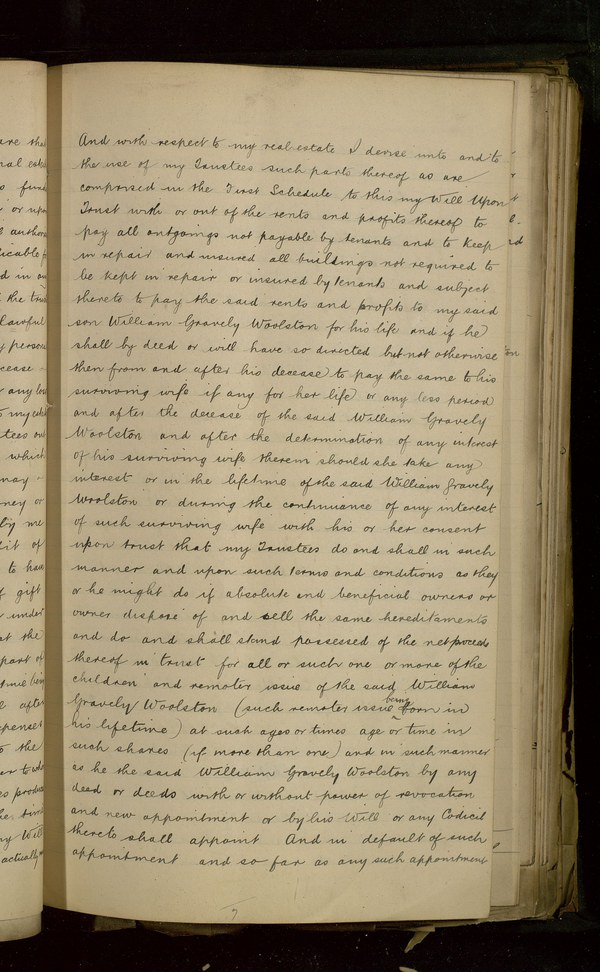 And with respect to my real estate I devise unto and to
the use of my Trustees such parts thereof as are
comprised in the First Schedule to this my Will Upon
Trust with or out of the rents and profits thereof to
pay all outgoings not payable by tenants and to keep
in repair and insured all buildings not required to
be kept in repair or insured by tenants and subject
thereto to pay the said rents and profits to my said
son William Gravely Woolston for his life and if he
shall by deed or will have so directed but not otherwise
then from and after his decease to pay the same to his
surviving wife if any for her life or any less period
and after the decease of the said William Gravely
Woolston and after the determination of any interest
of his surviving wife therein should she take any
interest or in the lifetime of the said William Gravely
Woolston or during the continuance of any interest
of such surviving wife with his or her consent
upon trust that my Trustees do and shall in such
manner and upon such terms and conditions as they
or he might do if absolute and beneficial owners or
owner dispose of and sell the same hereditaments
and do and shall stand possessed of the net proceeds
thereof in trust for all or such one or more of the
children and remoter issue of the said William
Gravely Woolston (such remoter issue being born in
his lifetime) at such ages or times age or time in
such shares (if more than one) and in such manner
as he the said William Gravely Woolston by any
deed or deeds with or without power of revocation
and new appointment or by his Will or any Codicil
thereto shall appoint And in default of such
appointment and so far as any such appointment
7